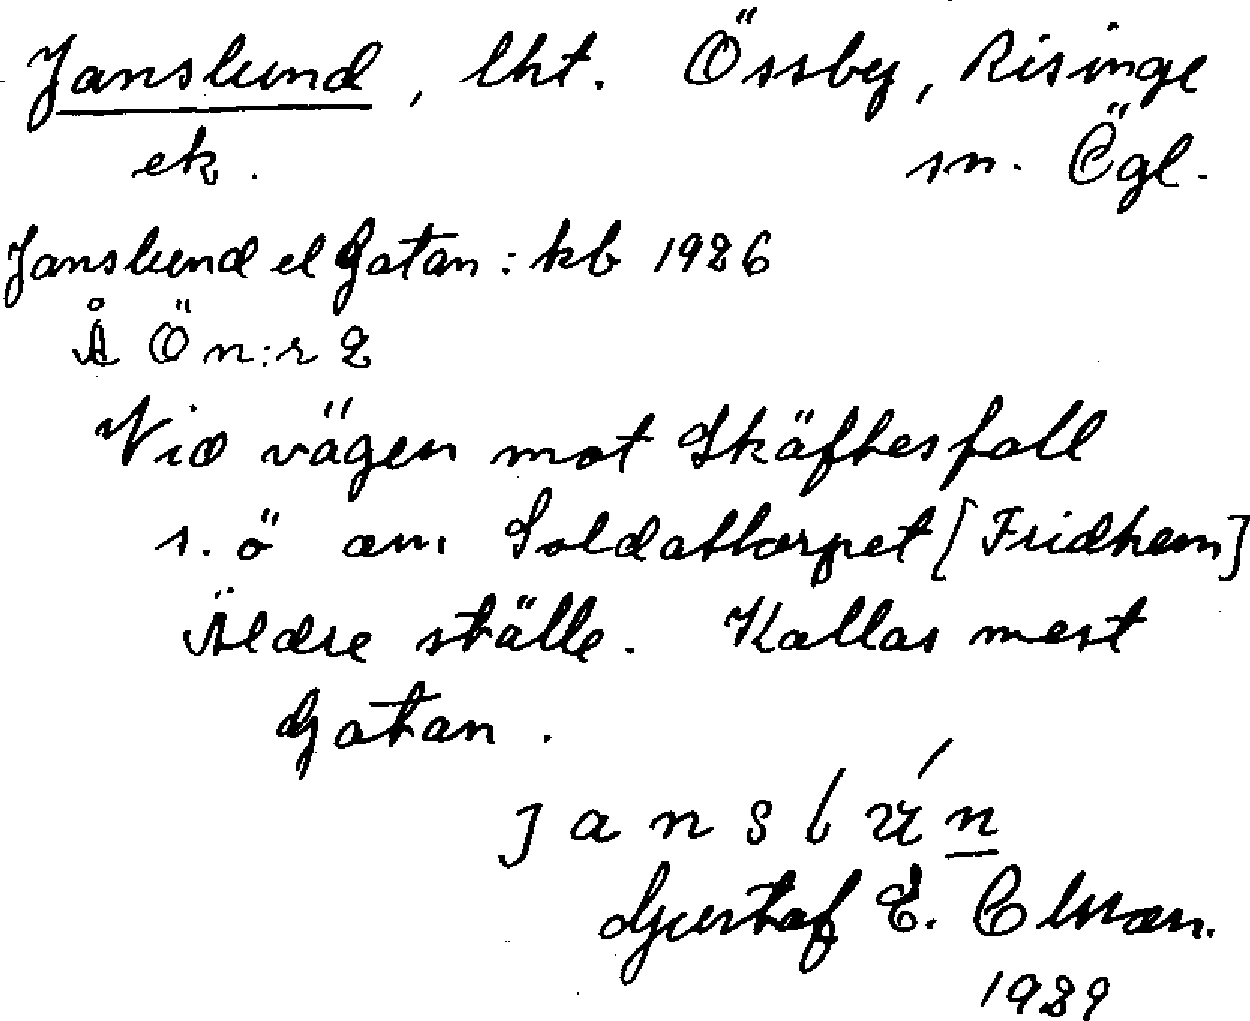 Janslund, lht. Össby, Risinge
ek. sn. Ögl.
Janslund el Gatan: kb 1926
Å Ö n:r 2
Vid vägen mot Skäftesfall
s. ö om Soldattorpet [Fridhem]
Äldre ställe. Kallas mest
Gatan.
Gustaf E.
1929